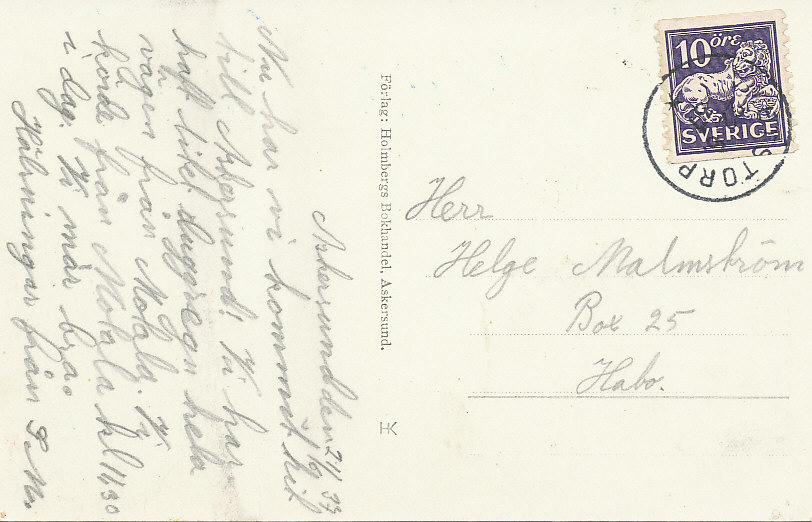 Askersund den 21/9 33
Nu har vi kommit hit
till Askersund! Vi har
haft litet duggregn hela
vägen från Motala. Vi
körde från Motala kl 11,30
i dag. Vi mår bra.
Hälsningar från S. M.
Förlag: Holmbergs Bokhandel, Askersund.
HK
10 öre
SVERIGE
STORP
Herr
Helge Malmström
Box 25
Habo.